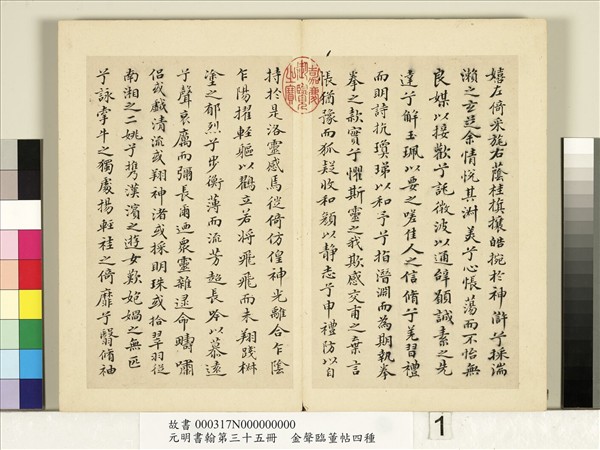 嬉左倚采旄右蔭桂旗攘皓捥於神滸兮採湍
瀨之玄芝余情悅其淑美兮心振蕩而不怡無
良媒以接歡兮託微波以通辭願誠素之先
達兮解玉珮以要之嗟佳人之信脩兮羌習禮
而明詩抗瓊珶以和予兮指潛淵而為期執拳
拳之款實兮懼斯靈之我欺感交甫之棄言
悵猶豫而狐疑收和顏以靜志兮申禮防以自
嘉慶御覽之寶
持於是洛靈感焉徙倚仿偟神光離合乍陰
乍陽擢輕軀以鶴立若將飛飛而未翔踐椒
塗之郁烈兮步衡薄而流芳超長吟以慕遠
兮聲哀厲而彌長爾迺眾靈雜遝命疇嘯
侶或戲清流或翔神渚或採明珠或拾翠羽從
南湘之二姚兮攜漢濱之遊女歎匏媧之無匹
兮詠牽牛之獨處揚輕袿之倚靡兮翳脩袖
故書 000317N000000000
元明書翰第三十五冊 金聲臨董帖四種
1